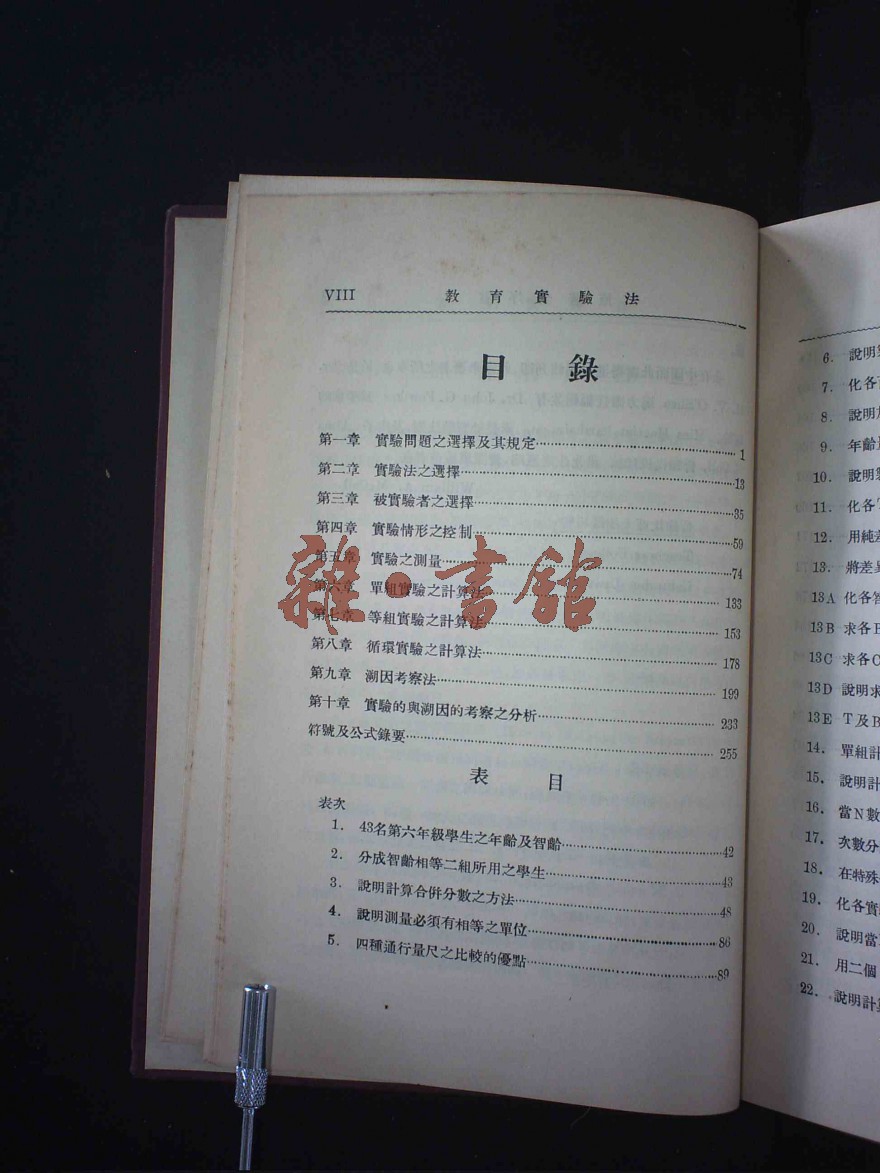 VIII 教育實驗法
目錄
第一章 實驗問題之選擇及其規定……1
第二章 實驗法之選擇……13
第三章 被實驗者之選擇……35
第四章 實驗情形之控制……59
第五章 實驗之測量……74
第六章 單組實驗之計算法……133
第七章 等組實驗之計算法……153
第八章 循環實驗之計算法……178
第九章 溯因考察法……199
第十章 實驗的與溯因的考察之分析……233
符號及公式錄要……255
雜·書館
表目
表次
1. 43名第六年級學生之年齡及智齡……42
2. 分成智齡相等二組所用之學生……43
3. 說明計算合併分數之方法……48
4. 說明測量必須有相等之單位……86
5. 四種通行量尺之比較的優點……89
6. 說明
7. 化各
8. 說明
9. 年齡
10. 說明
11. 化各
12. 用純
13. 將差
13A 化各
13B 求各
13C 求各
13D 說明求
13E T及B
14. 單組計
15. 說明計
16. 當N數
17. 次數分
18. 在特殊
19. 化各實
20. 說明當
21. 用二個
22. 說明計